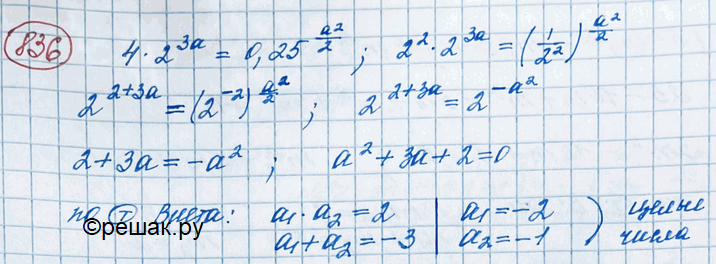 836
4 · 2^{3a} = 0,25^{a²/2} ; 2² · 2^{3a} = (1/2²)^{a²/2}
2^{2+3a} = (2^{-2})^{a²/2} ; 2^{2+3a} = 2^{-a²}
2+3a = -a² ; a² + 3a + 2 = 0
по т Виета: a₁ · a₂ = 2 | a₁ = -2 ) целые
©решак.ру a₁ + a₂ = -3 | a₂ = -1 ) числа